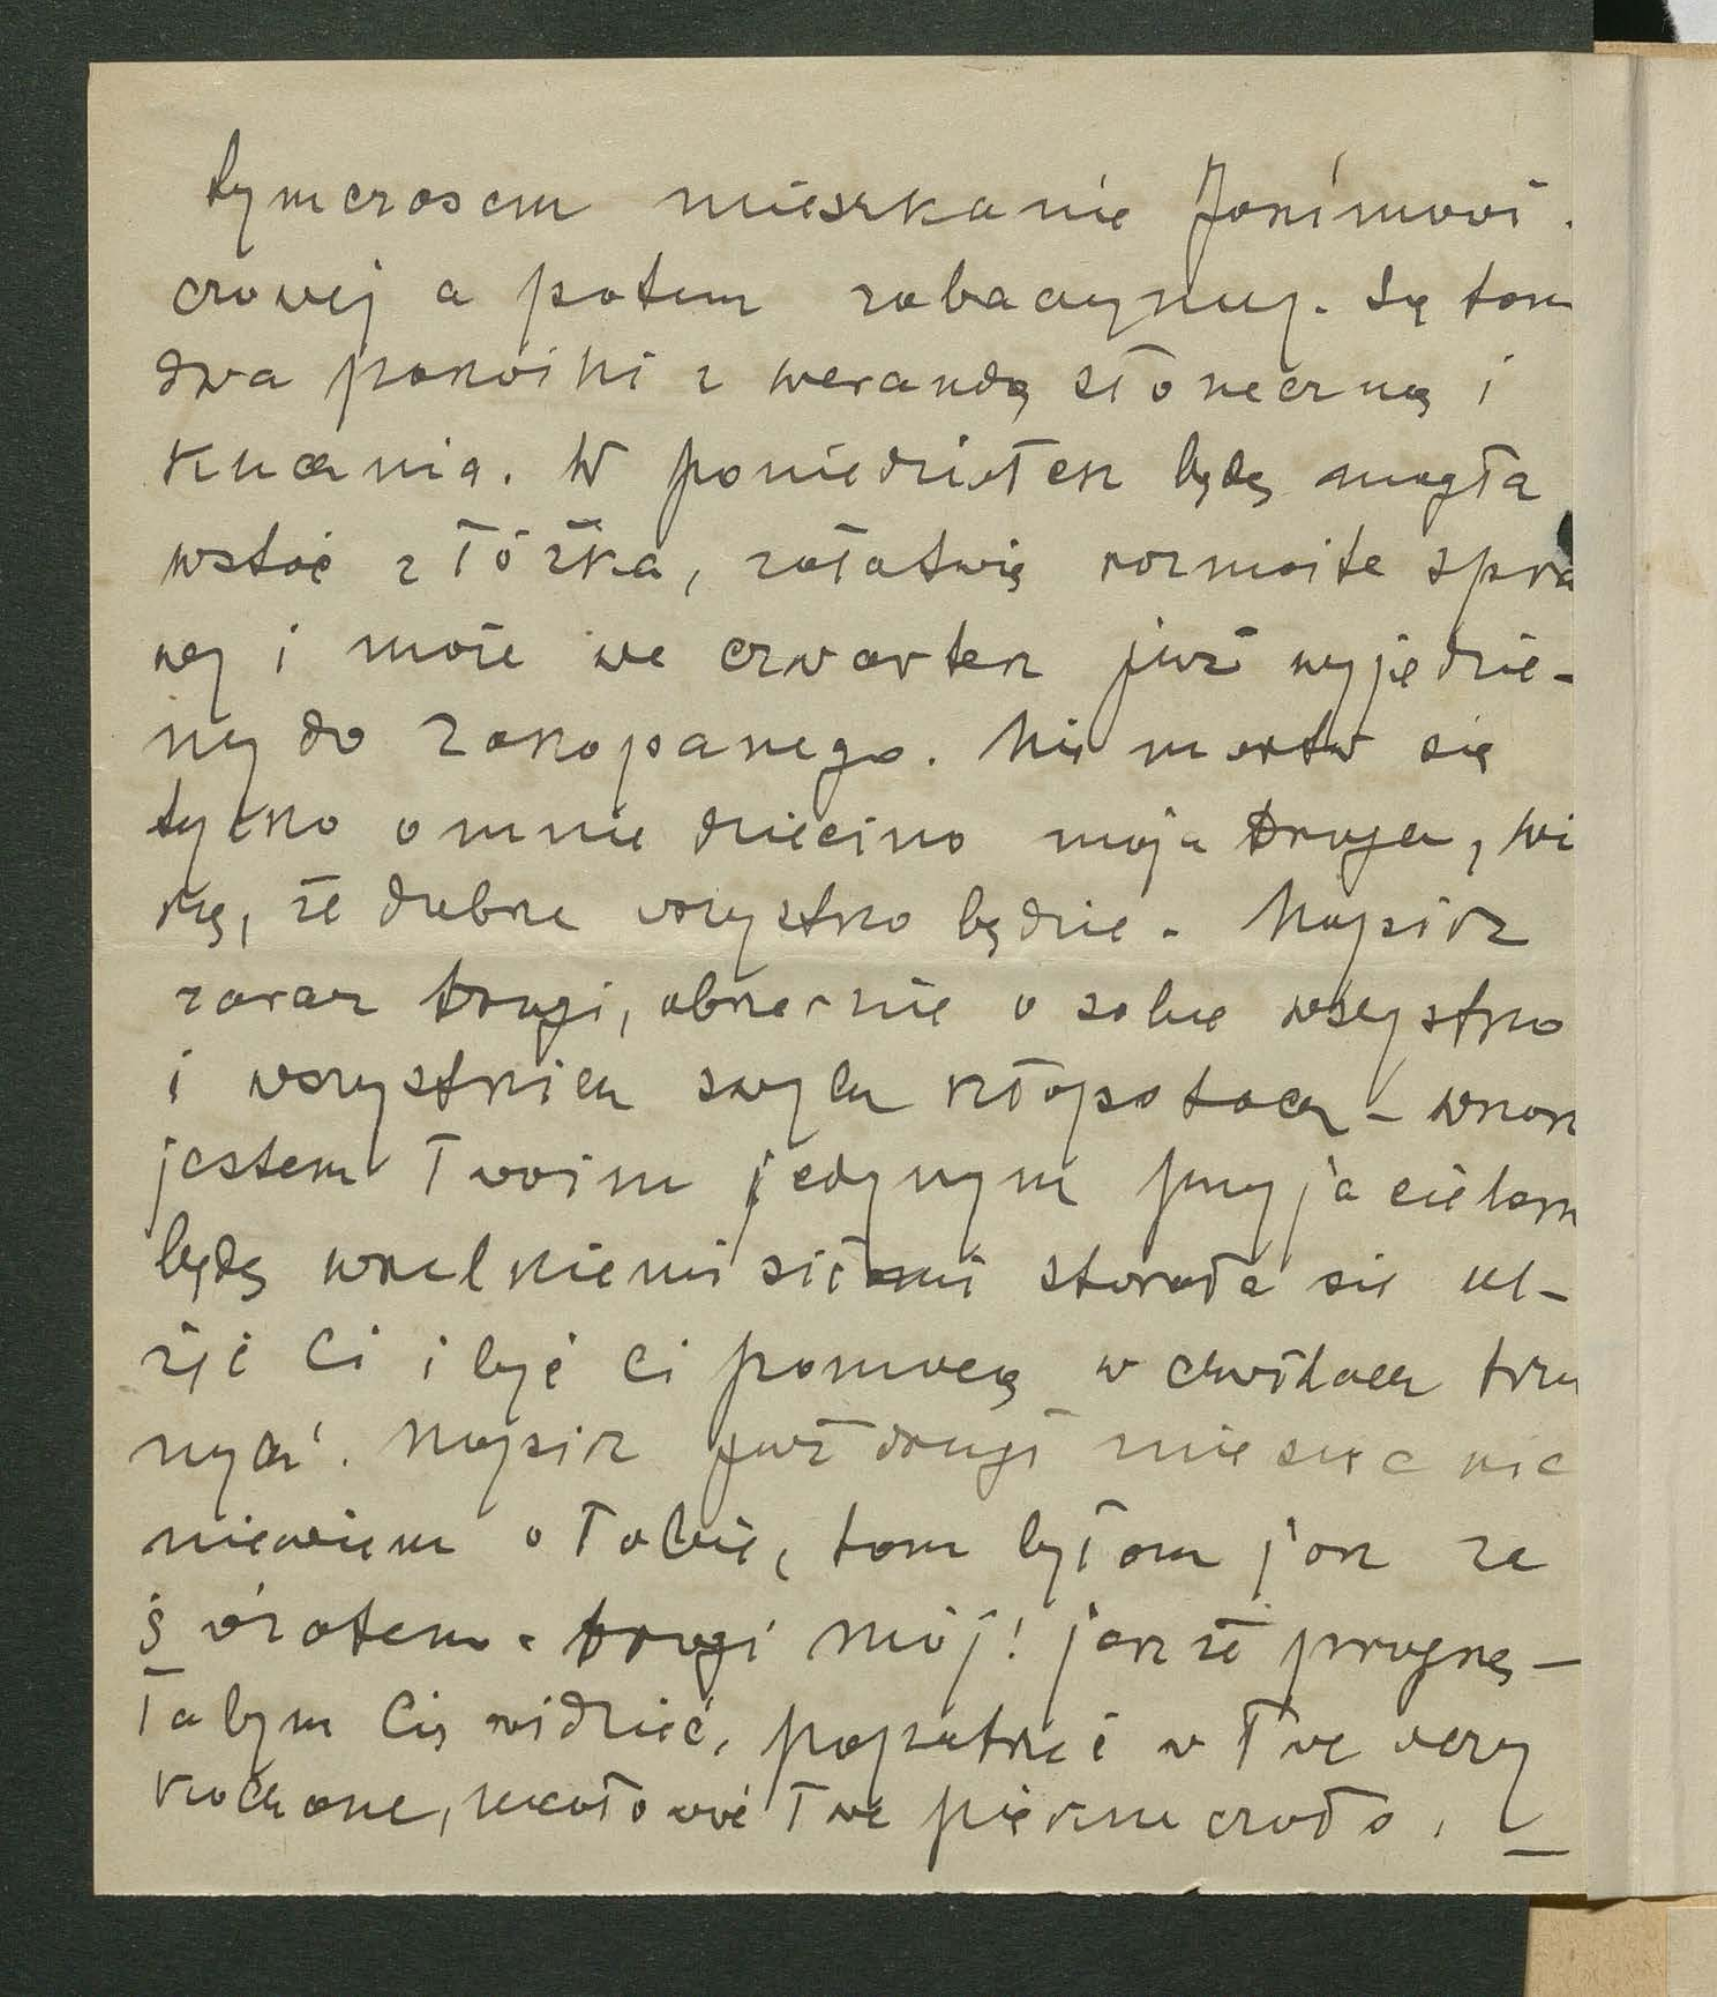 tymczasem mieszkanie Jakimowi-
czowej a potem zobaczymy. Są tam
dwa pokoiki z werandą słoneczną i
kuchnia. W poniedziałek będę mogła
wstać z łóżka, załatwię rozmaite spra
wy i może we czwartek już wyjedzie-
my do Zakopanego. Nie martw się
tylko o mnie dziecino moja droga, wi
rzę, że dobrze wszystko będzie. Napisz
zaraz drogi, obszernie o sobie wszystko
i wszystkich swych kłopotach – wszak
jestem Twoim jedynym przyjacielem
będę wszelkiemi siłami starała się ul-
żyć Ci i być Ci pomocą w chwilach tru
nych. Napisz już drugi miesiąc nic
nie wiem o Tobie, tam byłam jak za
światem. drogi mój! jakże pragnę-
łabym Cię widzieć, popatrzeć w Twe oczy
kochane, ucałować Twe piękne czoło,